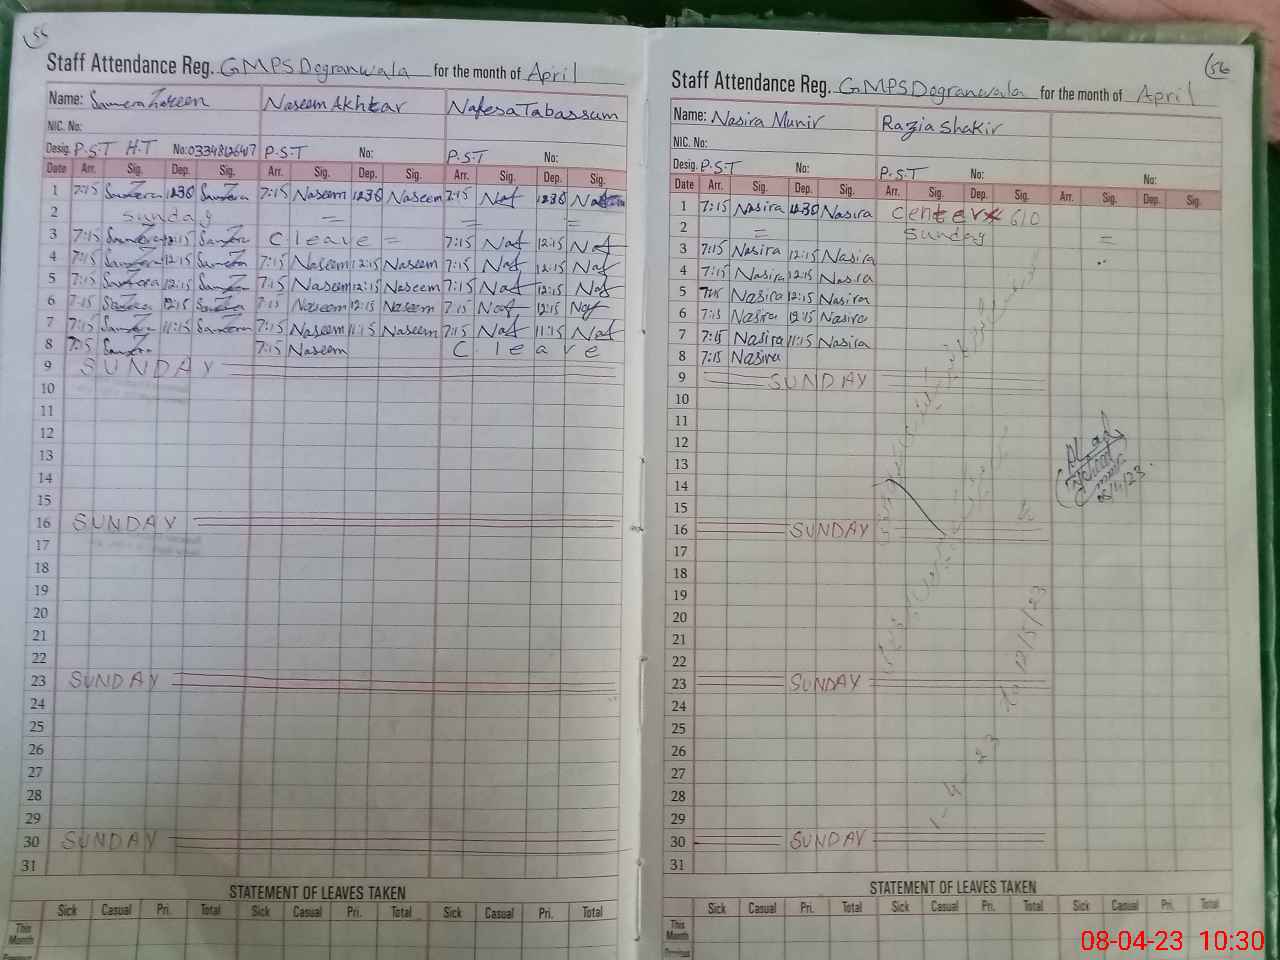 55
Staff Attendance Reg. GMPS Dogranwala for the month of April
Name: Sameera Zareen Naseem Akhtar Nafesa Tabassum
NIC. No:
Desig. P.S.T H.T No: P.S.T No: P.S.T No:
Date Arr. Sig. Dep. Sig. Arr. Sig. Dep. Sig. Arr. Sig. Dep. Sig.
1 7:15 Sameera 1230 Sameera 7:15 Naseem 1230 Naseem 7:15 Naf 1230
2 Sunday = = =
3 7:15 Sameera 12:15 Sameera C leave = 7:15 Naf 12:15 Naf
4 7:15 Sameera 12:15 Sameera 7:15 Naseem 12:15 Naseem 7:15 Naf 12:15 Naf
5 7:15 Sameera 12:15 Sameera 7:15 Naseem 12:15 Naseem 7:15 Naf 12:15 Naf
6 7:15 Sameera 12:15 Sameera 7:15 Naseem 12:15 Naseem 7:15 Naf 12:15 Naf
7 7:15 Sameera 11:15 Sameera 7:15 Naseem 11:15 Naseem 7:15 Naf 11:15 Naf
8 7:15 Sameera 7:15 Naseem C. leave
9 SUNDAY
10
11
12
13
14
15
16 SUNDAY
17
18
19
20
21
22
23 SUNDAY
24
25
26
27
28
29
30 SUNDAY
31
STATEMENT OF LEAVES TAKEN
Sick Casual Pri. Total Sick Casual Pri. Total Sick Casual Pri. Total
This Month
Previous
56
Staff Attendance Reg. GMPS Dogranwala for the month of April
Name: Nasira Munir Razia Shakir
NIC. No:
Desig. P.S.T No: P.S.T No: No:
Date Arr. Sig. Dep. Sig. Arr. Sig. Dep. Sig. Arr. Sig. Dep. Sig.
1 7:15 Nasira 1230 Nasira Center 610
2 = Sunday =
3 7:15 Nasira 12:15 Nasira
4 7:15 Nasira 12:15 Nasira
5 7:15 Nasira 12:15 Nasira
6 7:15 Nasira 12:15 Nasira
7 7:15 Nasira 11:15 Nasira
8 7:15 Nasira
9 SUNDAY
10
11
12
13
14
15
16 SUNDAY
17
18
19
20
21
22
23 SUNDAY
24
25
26
27
28
29
30 SUNDAY
31
1-4-23 to 12/5/23
STATEMENT OF LEAVES TAKEN
Sick Casual Pri. Total Sick Casual Pri. Total Sick Casual Pri. Total
This Month
Previous
08-04-23 10:30